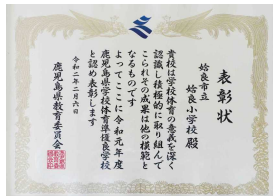 表彰状
姶良市立
姶良小学校殿
貴校は学校体育の意義を深く
認識し積極的に取り組んで
こられその成果は他の模範と
なるものです
よってここに令和元年度
鹿児島県学校体育準優良学校
と認め表彰します
令和二年二月六日
鹿児島県教育委員会